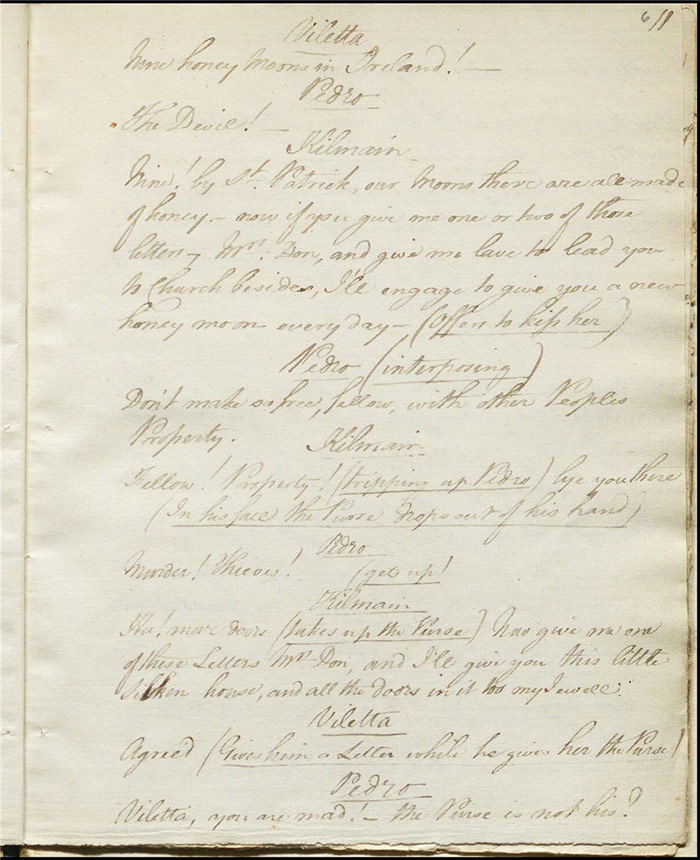 6 11
Viletta
Nine honey Moons in Ireland! —
Pedro
The Devil! —
Kilmain
Nine! by St. Patrick, our Moons there are all made
of honey — now if you give me one or two of those
letters, Mrs. Don, and give me lave to lead you
to Church besides, I'll engage to give you a new
honey moon every day — (Offers to kiss her)
Pedro (interposing)
Don't make so free, fellow, with other Peoples
Property.
Kilmain
Fellow! Property! (tripping up Pedro) lye you there
(In his fall the Purse drops out of his hand)
Pedro
Murder! Thieves! (gets up!
Kilmain
Ha! more doors (takes up the Purse) Now give me one
of these Letters Mrs. Don, and I'll give you this little
Silken house, and all the doors in it too my Jewell.
Viletta
Agreed (Gives him a Letter while he gives her the Purse)
Pedro
Viletta, you are mad! — the Purse is not his!